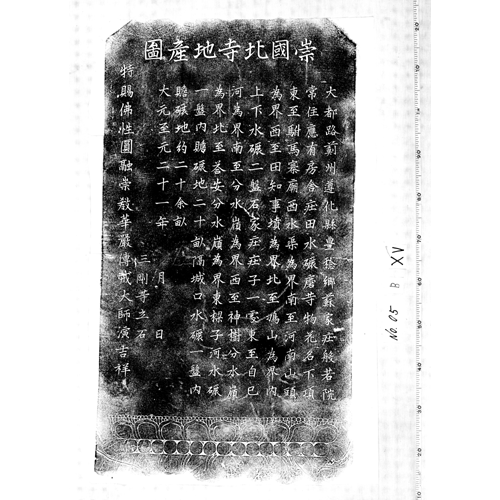 崇國北寺地產圖
大都路薊州遵化縣豐稔鄉蘇家庄般若院
常住應有房舍庄田水碾磨等物花名下項
東至駙馬寨廟西水渠為界南至河南山頭
為界西至田知事墳為界北至鴉山為界內
上下水碾二盤石家庄庄子一處東至自巳
河為界南至分水嶺為界西至神樹分水嶺
為界北至荅安分水嶺為界東樑子河水碾
一盤內贍碾地二十畝隔城口水碾一盤內
贍碾地約二十余畝
大元至元二十一年 月 日
三剛等立石
特賜佛性圓融崇教華嚴傳戒大師演吉祥
No. 05 B XV